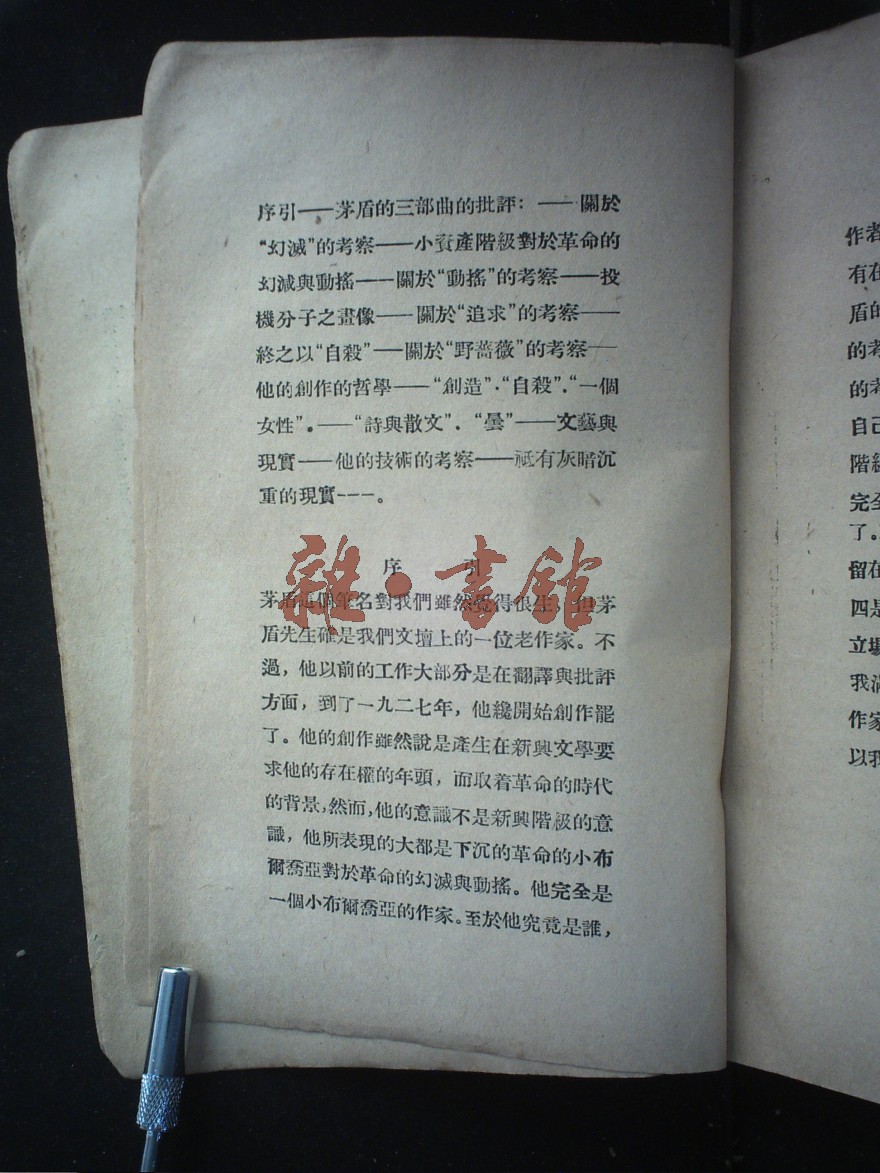 序引——茅盾的三部曲的批評：——關於
“幻滅”的考察——小資產階級對於革命的
幻滅與動搖——關於“動搖”的考察——投
機分子之畫像——關於“追求”的考察——
終之以“自殺”——關於“野薔薇”的考察——
他的創作的哲學——“創造”．“自殺”．“一個
女性”。——“詩與散文”．“曇”——文藝與
現實——他的技術的考察——祗有灰暗沉
重的現實———。
序　引
茅盾這個筆名對我們雖然覺得很生，但茅
盾先生確是我們文壇上的一位老作家。不
過，他以前的工作大部分是在翻譯與批評
方面，到了一九二七年，他纔開始創作罷
了。他的創作雖然說是產生在新興文學要
求他的存在權的年頭，而取着革命的時代
的背景，然而，他的意識不是新興階級的意
識，他所表現的大都是下沉的革命的小布
爾喬亞對於革命的幻滅與動搖。他完全是
一個小布爾喬亞的作家。至於他究竟是誰，
雜·書館
作者
有在
盾的
的考
的考
自己
階級
完全
了。
留在
四是
立場
我滿
作家
以我